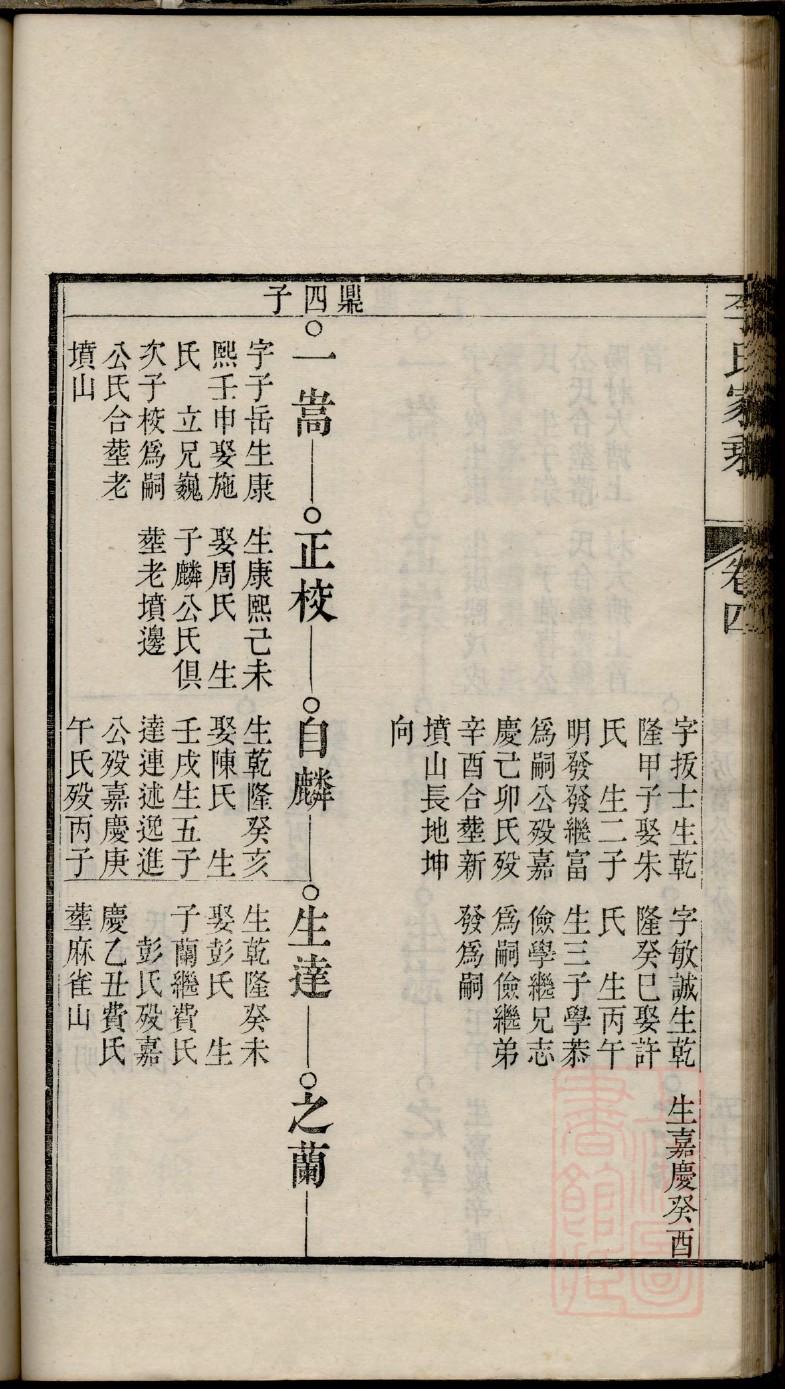 李氏家乘
卷四
字扳士生乾
隆甲子娶朱
氏　生二子
明發發繼富
爲嗣公殁嘉
慶己卯氏殁
辛酉合塟新
墳山長地坤
向
字敏誠生乾
隆癸巳娶許
氏　生丙午
生三子學恭
儉學繼兄志
爲嗣儉繼弟
發爲嗣
生嘉慶癸酉
鼎四子
一嵩
字子岳生康
熙壬申娶施
氏　立兄巍
次子校爲嗣
公氏合塟老
墳山
正校
生康熙己未
娶周氏　生
子麟公氏俱
塟老墳邊
自麟
生乾隆癸亥
娶陳氏　生
壬戌生五子
達連述逸進
公殁嘉慶庚
午氏殁丙子
生達
生乾隆癸未
娶彭氏　生
子蘭繼費氏
彭氏殁嘉
慶乙丑費氏
塟麻雀山
之蘭